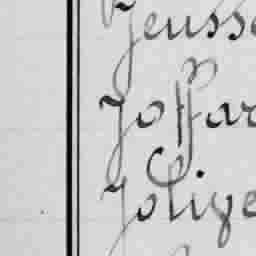 Jeusse
Joffar
Jolige